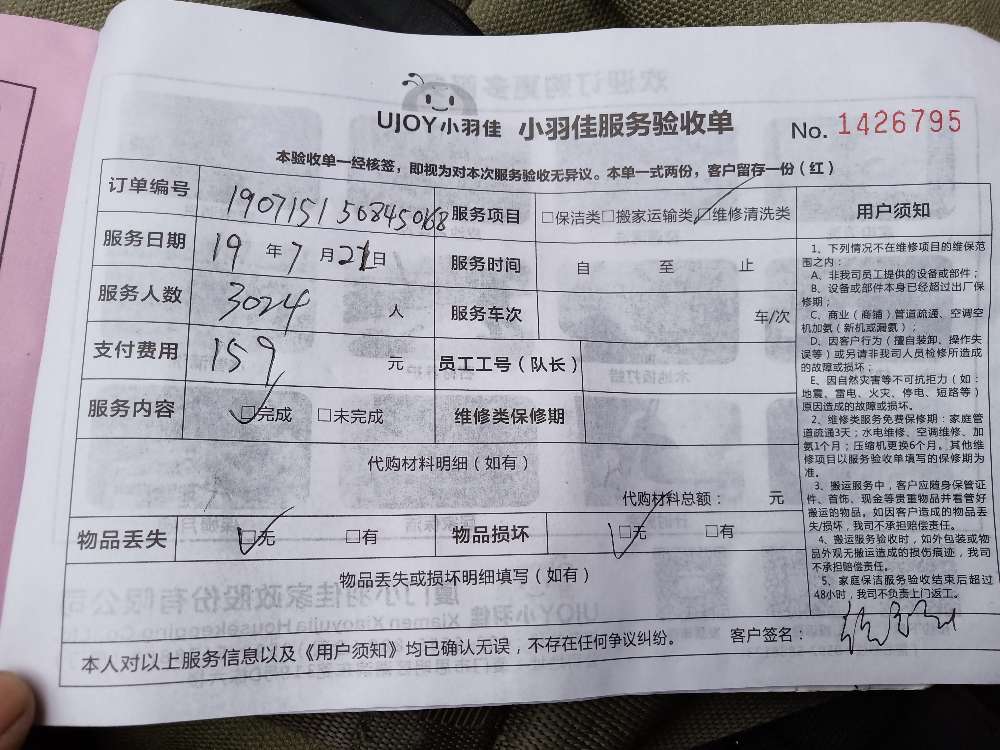 UJOY小羽佳 小羽佳服务验收单 No. 1426795
本验收单一经核签，即视为对本次服务验收无异议。本单一式两份，客户留存一份（红）
订单编号 190715156845068 服务项目 □保洁类□搬家运输类☑维修清洗类
服务日期 19 年 7 月 21 日 服务时间 自 至 止
服务人数 3024 人 服务车次 车/次
支付费用 159 元 员工工号（队长）
服务内容 ☑完成 □未完成 维修类保修期
代购材料明细（如有）
代购材料总额： 元
物品丢失 ☑无 □有 物品损坏 ☑无 □有
物品丢失或损坏明细填写（如有）
本人对以上服务信息以及《用户须知》均已确认无误，不存在任何争议纠纷。 客户签名：
用户须知
1、下列情况不在维修项目的维保范
围之内：
A、非我司员工提供的设备或部件；
B、设备或部件本身已经超过出厂保
修期；
C、商业（商铺）管道疏通、空调空
机加氨（新机或漏氨）；
D、因客户行为（擅自装卸、操作失
误等）或另请非我司人员检修所造成
的故障或损坏；
E、因自然灾害等不可抗拒力（如：
地震、雷电、火灾、停电、短路等）
原因造成的故障或损坏。
2、维修类服务免费保修期：家庭管
道疏通3天；水电维修、空调维修、加
氨1个月；压缩机更换6个月。其他维
修项目以服务验收单填写的保修期为
准。
3、搬运服务中，客户应随身保管证
件、首饰、现金等贵重物品并看管好
搬运的物品。如因客户造成的物品丢
失/损坏，我司不承担赔偿责任。
4、搬运服务验收时，如外包装或物
品外观无搬运造成的损伤痕迹，我司
不承担赔偿责任。
5、家庭保洁服务验收结束后超过
48小时，我司不负责上门返工。